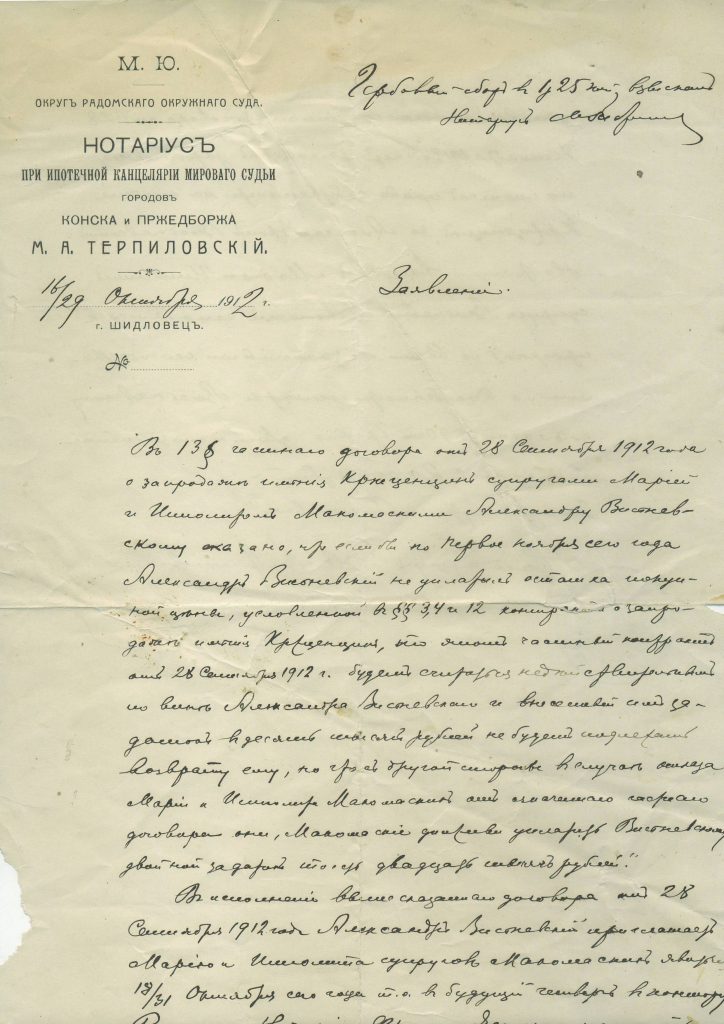 М. Ю.
ОКРУГЪ РАДОМСКАГО ОКРУЖНАГО СУДА.
НОТАРІУСЪ
ПРИ ИПОТЕЧНОЙ КАНЦЕЛЯРІИ МИРОВАГО СУДЬИ
ГОРОДОВЪ
КОНСКА И ПРЖЕДБОРЖА
М. А. ТЕРПИЛОВСКІЙ.
16/29 Октября 1912 г.
г. ШИДЛОВЕЦЪ.
№
Гербовый сборъ в 1 р 25 коп взысканъ
Нотаріусъ
Заявленіе.
Въ 13 § частнаго договора отъ 28 Сентября 1912 года
о запродажѣ имѣнія супругами Маріей
и Макомаскими Александру Висневскому
сказано, что если бы по первое ноября сего года
Александръ Висневскій не уплатилъ остатка покуп-
ной цѣны, условленной в §§ 3, 4 и 12 контракта о запро-
дажѣ имѣнія то этотъ частный контрактъ
отъ 28 Сентября 1912 г. будетъ считаться недѣйствительнымъ
по винѣ Александра Висневскаго и внесенный имъ за-
датокъ в десять тысячъ рублей не будетъ подлежать
возврату ему, но что съ другой стороны в случаѣ отказа
Маріи и Макомаскихъ отъ означеннаго частнаго
договора они, Макомаскіе должны уплатить Висневскому
двойной задатокъ то есть двадцать тысячъ рублей".
В исполненіи вышесказаннаго договора отъ 28
Сентября 1912 года Александръ Висневскій приглашаетъ
Марію и Ипполита супруговъ Макомаскихъ
18/31 Октября сего года т. е. в будущій четвергъ в контору